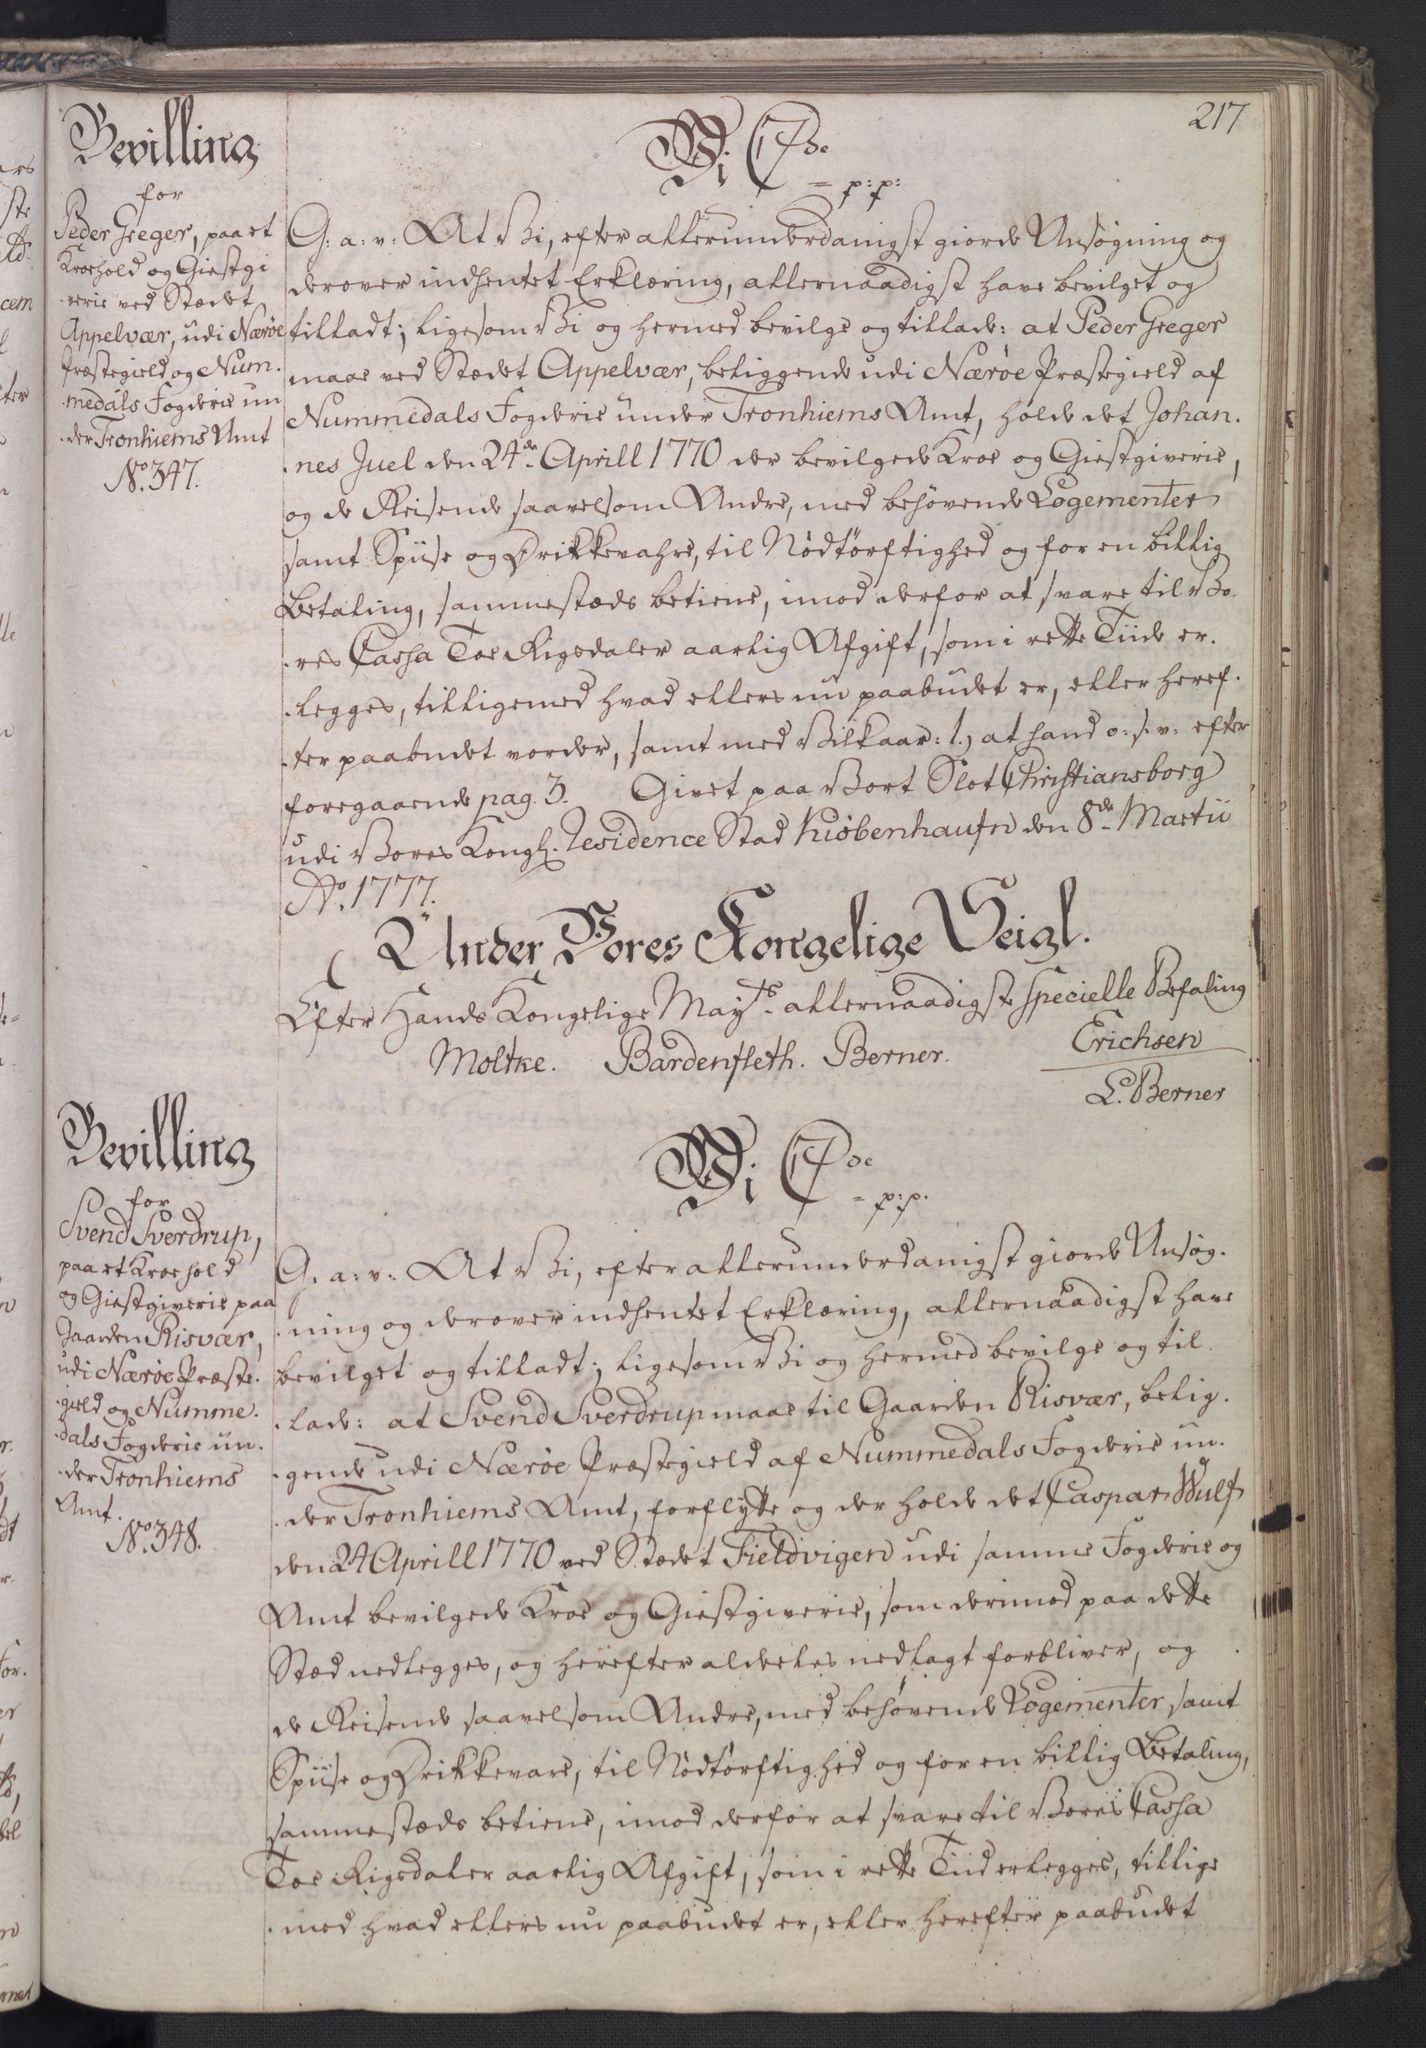 217
Bevilling
for
Peder Greger, paa et
Kroehold og Giestgi
verie ved Stædet
Appelvær, udi Nærøe
Præstegield og Num-
-medals Fogderie un
-der Tronhiems Amt
No. 347.
Vi C 7de
= p: p:
G: a: v: At Vi, efter allerunderdanigst giorde Ansøgning og
derover indhentet Erklæring, allernaadigst have bevilget og
tilladt; ligesom Vi og hermed bevilge og tillade: at Peder Greger
maae ved Stædet Appelvær, beliggende udi Nærøe Præstegield af
Nummedals Fogderie under Tronhiems Amt, holde det Johan-
-nes Juel den 24de Aprill 1770 der bevilgede Kroe og Giestgiverie,
og de Reisende saavelsom Andre, med behøvende Logementer
samt Spiise og Drikkevahre, til Nödtörftighed og for en billig
Betaling, sammestæds betiene, imod derfor at svare til Vo-
-res Cassa Toe Rigsdaler aarlig Afgift, som i rette Tiide er-
-legges, tilligemed hvad ellers nu paabudet er, eller heref-
-ter paabudet vorder, samt med Vilkaar: 1.) at hand o: s: v: efter
foregaaende pag. 3. Givet paa Vort Slot Christiansborg
udi Vores Kongl. Residence Stad Kiöbenhaufn den 8de Martii
Ao. 1777.
Under Vores Kongelige Seigl.
Efter Hands Kongelige Mayts. allernaadigste specielle Befaling
Moltke. Bardenfleth. Berner. Erichsen
L. Berner
Bevilling
for
Svend Sverdrup,
paa et Kroehold
og Giestgiverie paa
Gaarden Risvær,
udi Nærøe Præste-
-gield og Numme-
-dals Fogderie un-
-der Tronhiems
Amt.
No. 348.
Vi C 7de
= p: p.
G: a: v: At Vi, efter allerunderdanigst giorde Ansøg-
-ning og derover indhentet Erklæring, allernaadigst have
bevilget og tilladt; ligesom Vi og hermed bevilge og til-
-lade: at Svend Sverdrup maae til Gaarden Risvær, belig-
-gende udi Nærøe Præstegield af Nummedals Fogderie un-
-der Tronhiems Amt, forflytte og der holde det Caspar Wulf
den 24 Aprill 1770 ved Stædet Fieldvigen udi samme Fogderie og
Amt bevilgede Kroe og Giestgiverie, som derimod paa dette
Stæd nedlegges, og herefter aldeeles nedlagt forbliver, og
de Reisende saavelsom Andre, med behøvende Logementer samt
Spiise og Drikkevare, til Nödtörftighed og for en billig Betaling,
sammestæds betiene, imod derfor at svare til Vores Cassa
Toe Rigsdaler aarlig Afgift, som i rette Tiid erlegges, tillige-
-med hvad ellers nu paabudet er, eller herefter paabudet